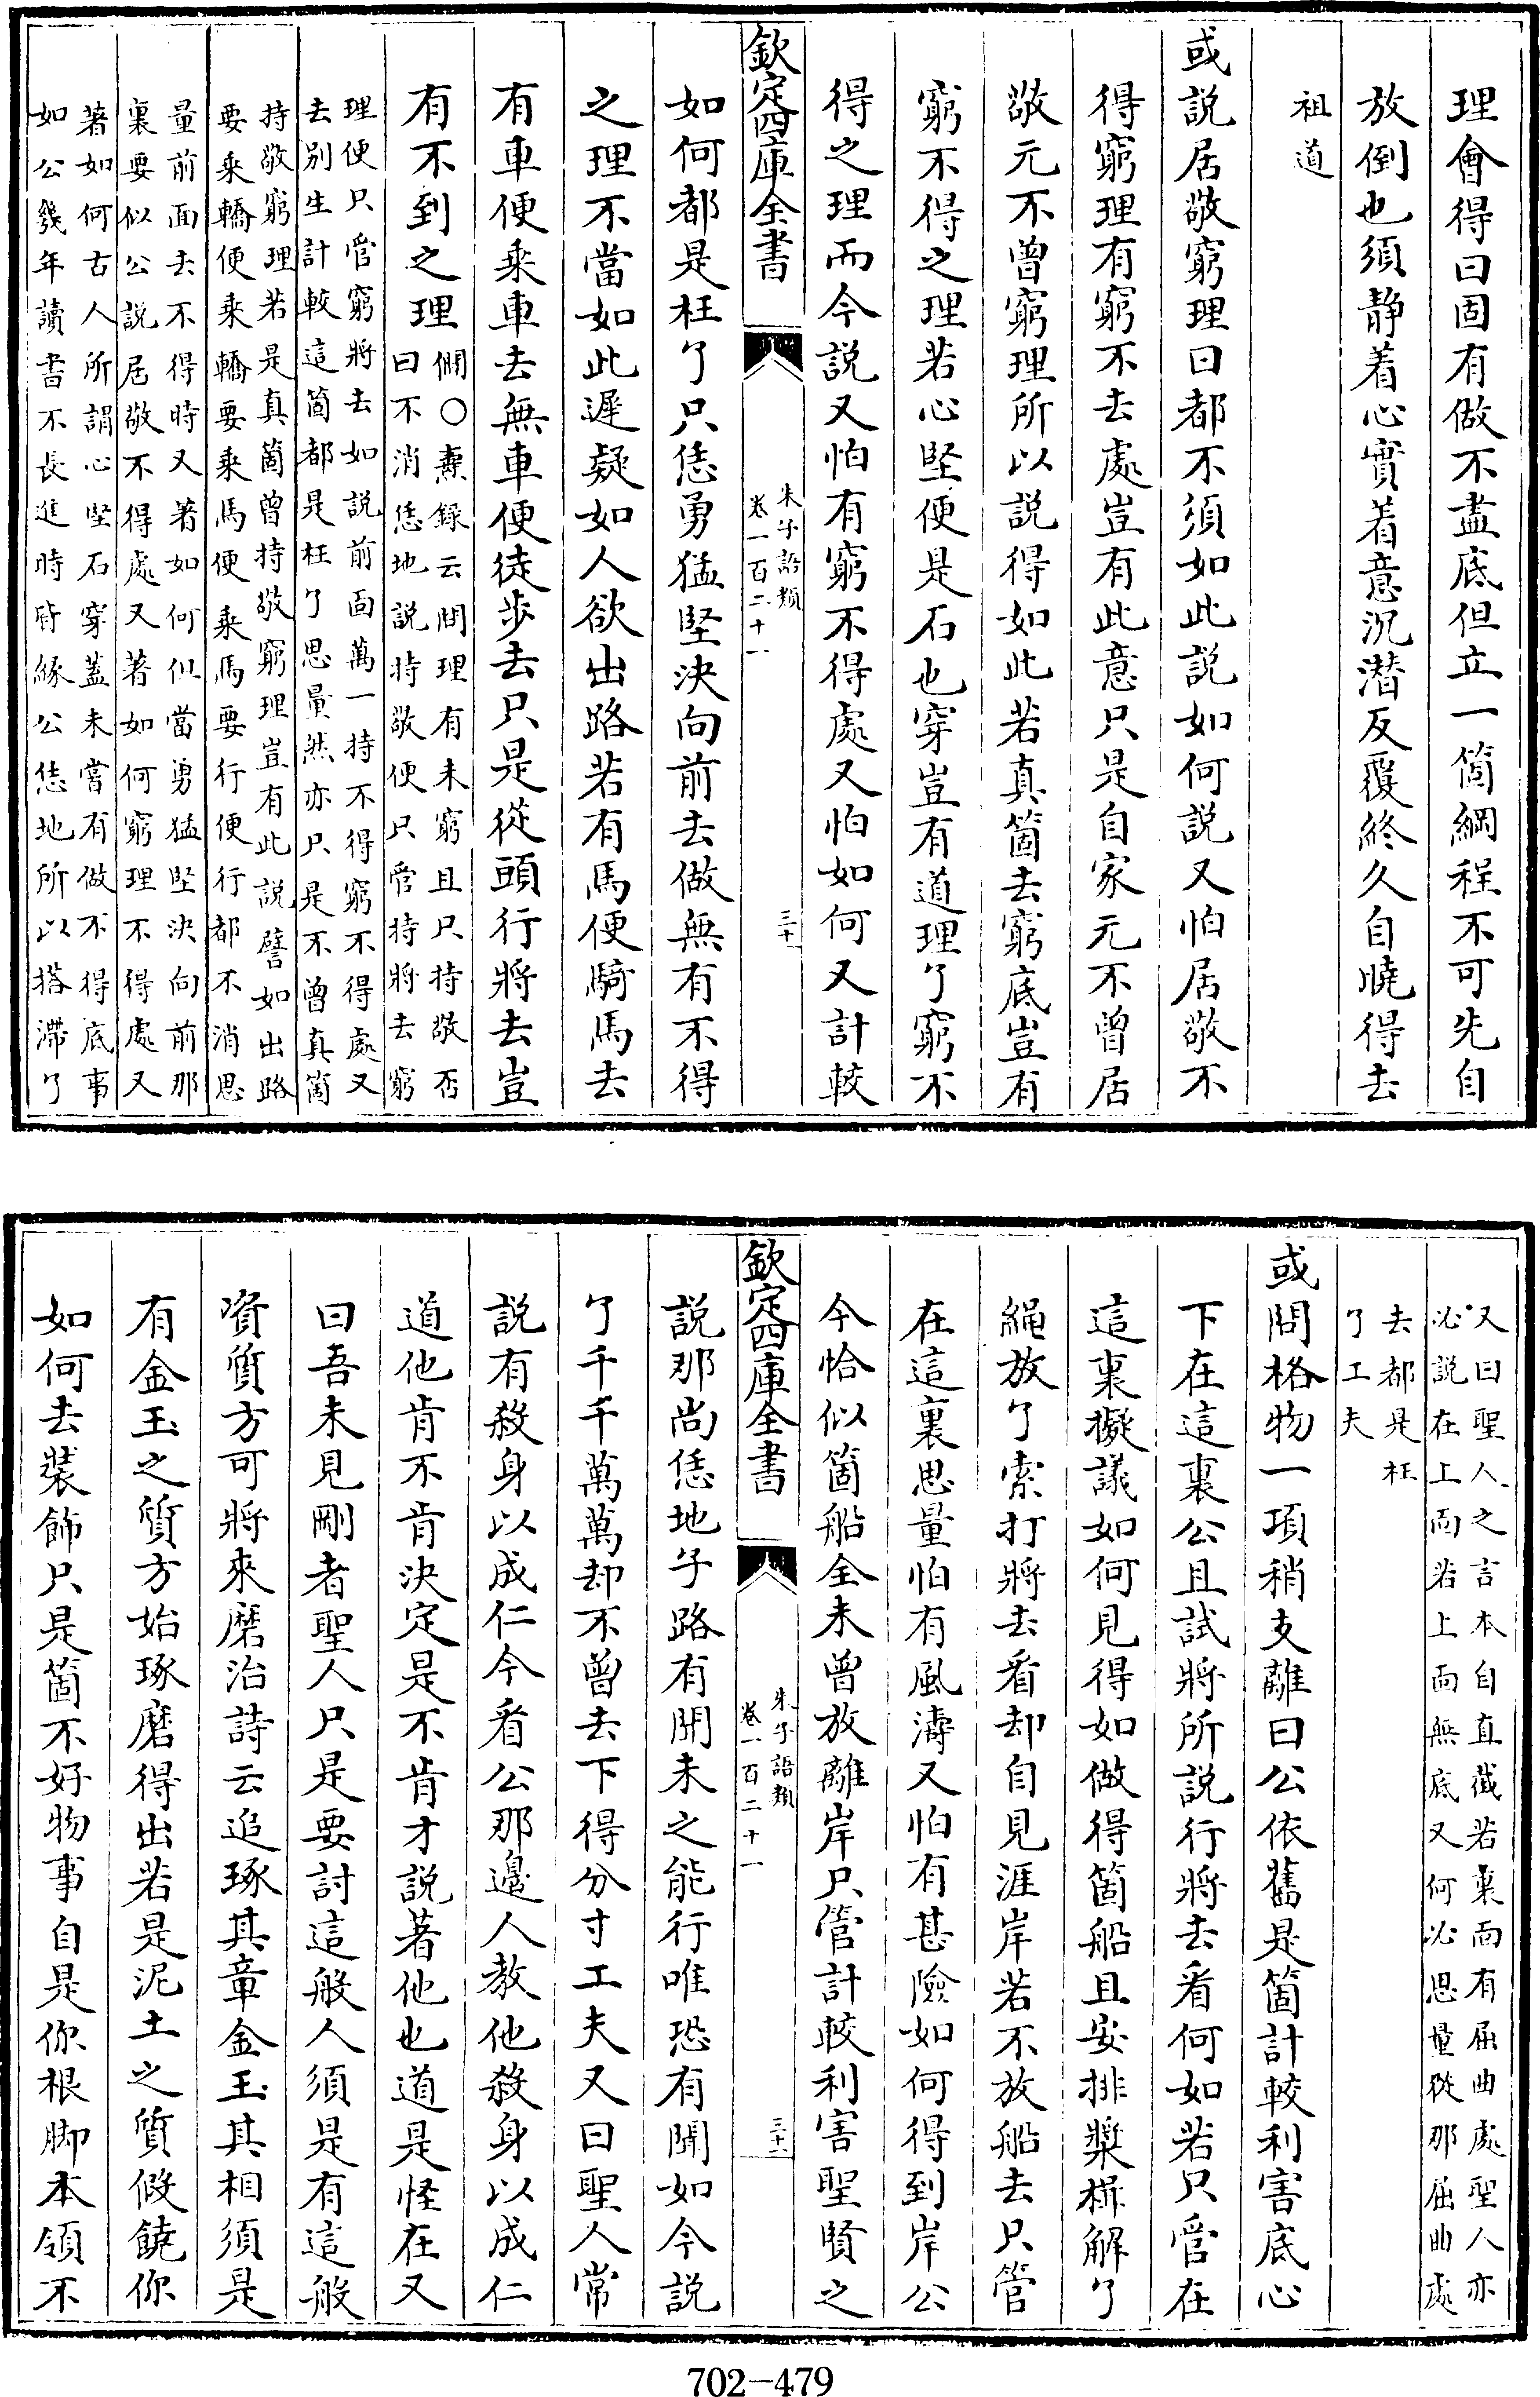 理會得曰固有做不盡底但立一箇綱程不可先自
放倒也須静着心實着意沉潛反覆終久自曉得去
祖道
或説居敬窮理曰都不須如此説如何説又怕居敬不
得窮理有窮不去處豈有此意只是自家元不曾居
敬元不曾窮理所以説得如此若真箇去窮底豈有
窮不得之理若心堅便是石也穿豈有道理了窮不
得之理而今説又怕有窮不得處又怕如何又計較
欽定四庫全書
朱子語類
卷一百二十一
三十一
如何都是枉了只恁勇猛堅決向前去做無有不得
之理不當如此遲疑如人欲出路若有馬便騎馬去
有車便乘車去無車便徒步去只是從頭行將去豈
有不到之理
僩○燾録云問理有未窮且只持敬否
曰不消恁地説持敬便只管持將去窮
理便只管窮將去如説前面萬一持不得窮不得處又
去别生計較這箇都是枉了思量然亦只是不曾真箇
持敬窮理若是真箇曾持敬窮理豈有此説譬如出路
要乘轎便乘轎要乘馬便乘馬要行便行都不消思
量前面去不得時又著如何但當勇猛堅決向前那
裏要似公説居敬不得處又著如何窮理不得處又
著如何古人所謂心堅石穿蓋未嘗有做不得底事
如公幾年讀書不長進時皆緣公恁地所以搭滯了
又曰聖人之言本自直截若裏面有屈曲處聖人亦
必説在上面若上面無底又何必思量從那屈曲處
去都是枉
了工夫
或問格物一項稍支離曰公依舊是箇計較利害底心
下在這裏公且試將所説行將去看何如若只管在
這裏擬議如何見得如做得箇船且安排槳楫解了
繩放了索打將去看却自見涯岸若不放船去只管
在這裏思量怕有風濤又怕有甚險如何得到岸公
今恰似箇船全未曾放離岸只管計較利害聖賢之
欽定四庫全書
朱子語類
卷一百二十一
三十一
説那尚恁地子路有聞未之能行唯恐有聞如今説
了千千萬萬却不曾去下得分寸工夫又曰聖人常
説有殺身以成仁今看公那邊人教他殺身以成仁
道他肯不肯決定是不肯才説著他也道是怪在又
曰吾未見剛者聖人只是要討這般人須是有這般
資質方可將來磨治詩云追琢其章金玉其相須是
有金玉之質方始琢磨得出若是泥土之質假饒你
如何去裝飾只是箇不好物事自是你根脚本領不
702-479